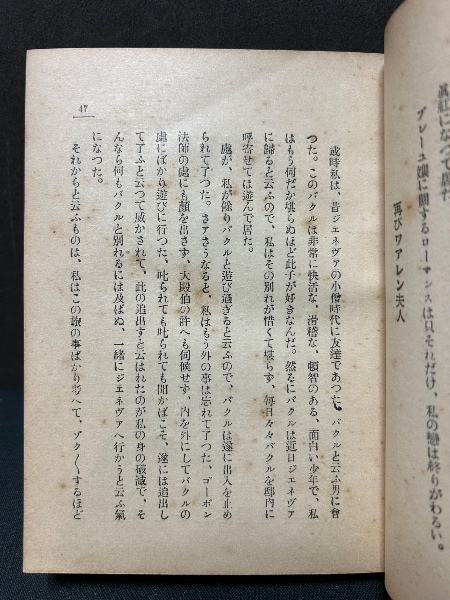 眞紅になつて
ブレーユ孃に關するローマンスは只それだけ、私の戀は終りがわるい。
再びワアレン夫人
或時私は、昔ジェネヴアの小僧時代に友達であつた、バクルと云ふ男に會
つた。このバクルは非常に快活な、滑稽な、頓智のある、面白い少年で、私
はもう何だか堪らぬほど此子が好きなんだ。然るにバクルは近日ジェネヴア
に歸ると云ふので、私はその別れが惜くて堪らず、每日々々バクルを邸內に
呼寄せては遊んで居た。
處が、私が餘りバクルと遊び過ぎると云ふので、バクルは遂に出入を止め
られて了つた。さアさうなると、私はもう外の事は忘れて了つた。ゴーボン
法師の處にも顏を出さず、大殿伯の許へも伺候せず、內を外にしてバクルの
處にばかり遊びに行つた。叱られても叱られても聞かばこそ、遂には追出し
て了ふと云つて威かされて、此の追出すと云はれたのが私の身の破滅で、そ
んなら何もバクルと別れるには及ばぬ、一緖にジエネヴアへ行かうと云ふ氣
になつた。
それからと云ふものは、私はこの旅の事ばかり考へて、ゾク〱するほど
47